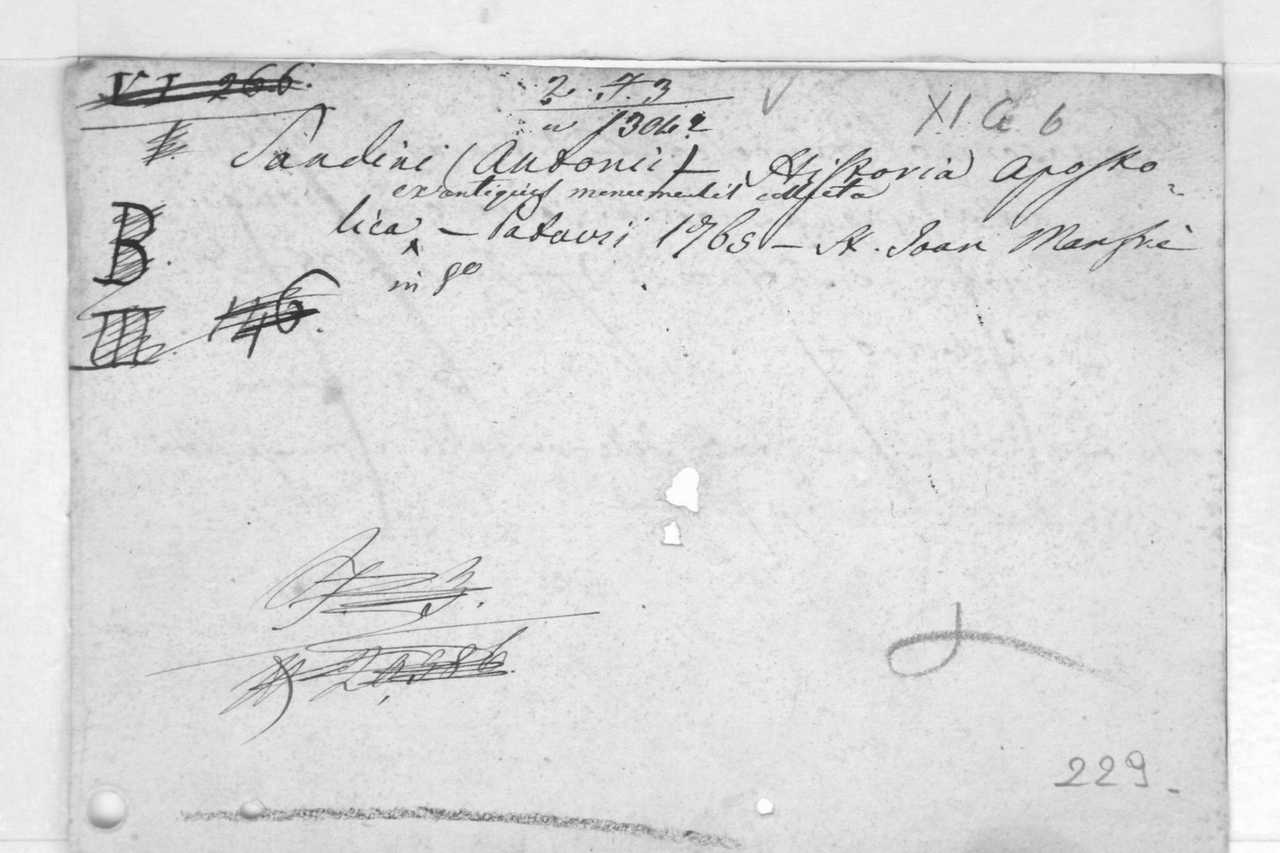 VI 266.
2. 7. 3
13042
XI G 6
Sandini (Antonii) – Historia Aposto-
ex antiquis monumentis collecta
lica – Patavii 1765 – St. Joan Manfrè
in 8º
B.
III 146.
229.